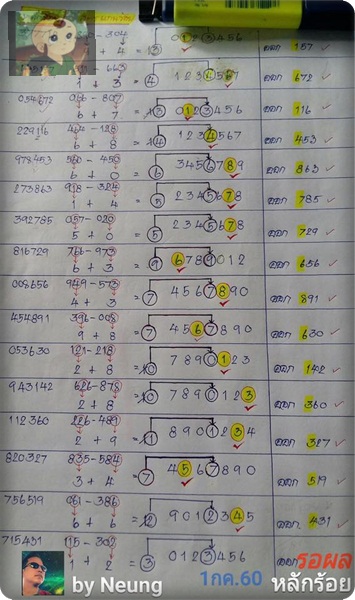 304
+ 4 = 13 0 1 2 3 4 5 6 ออก 157
663
1 + 3 = 4 1 2 3 4 5 6 7 ออก 672
054672 016 - 807
6 + 7 = 13 0 1 2 3 4 5 6 ออก 116
229116 464 - 128
6 + 8 = 14 1 2 3 4 5 6 7 ออก 453
978453 560 - 450
6 + 0 = 6 3 4 5 6 7 8 9 ออก 863
273863 918 - 324
1 + 4 = 5 2 3 4 5 6 7 8 ออก 785
392785 057 - 020
5 + 0 = 5 2 3 4 5 6 7 8 ออก 729
816729 766 - 973
6 + 3 = 9 6 7 8 9 0 1 2 ออก 656
008656 949 - 573
4 + 3 = 7 4 5 6 7 8 9 0 ออก 891
454891 396 - 008
9 + 8 = 7 4 5 6 7 8 9 0 ออก 630
053630 121 - 218
2 + 8 = 10 7 8 9 0 1 2 3 ออก 142
943142 626 - 878
2 + 8 = 10 7 8 9 0 1 2 3 ออก 360
112360 226 - 489
2 + 9 = 11 8 9 0 1 2 3 4 ออก 327
820327 835 - 584
3 + 4 = 7 4 5 6 7 8 9 0 ออก 519
756519 061 - 386
6 + 6 = 12 9 0 1 2 3 4 5 ออก 431
715431 115 - 302
1 + 2 = 3 0 1 2 3 4 5 6 ออก รอผล
by Neung 1กค.60 หลักร้อย